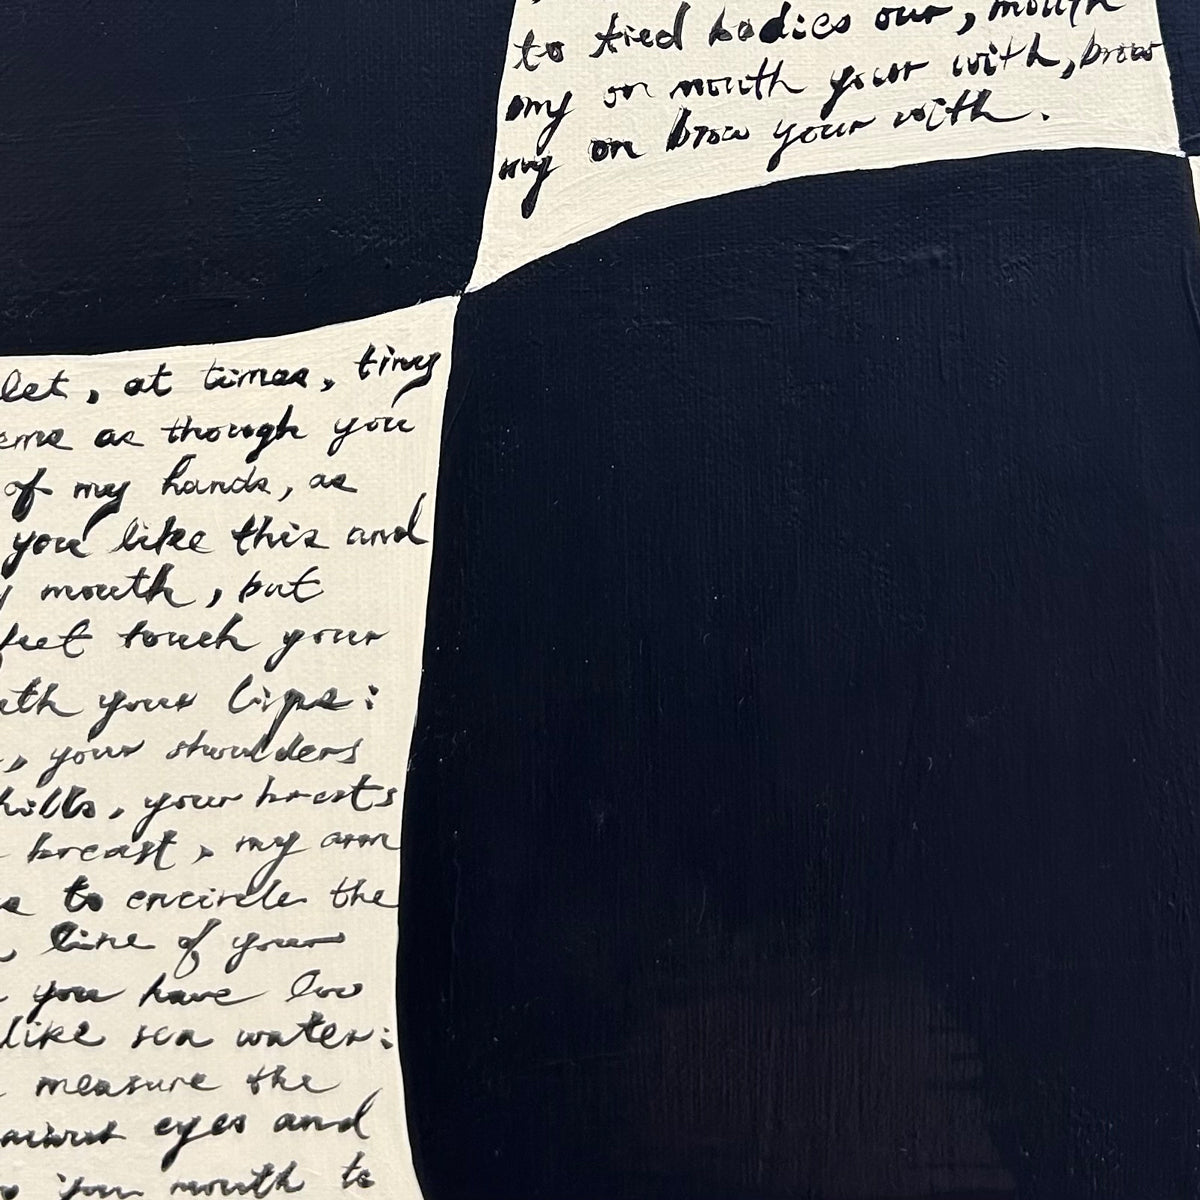 to tied bodies our, mouth
my on mouth your with, brow
my on brow your with.
let, at times, tiny
as though you
of my hands, as
you like this and
mouth, but
feet touch your
your lips:
, your shoulders
hills, your breasts
breast, my arm
to encircle the
line of your
you have loo
like sea water:
measure the
eyes and
your mouth to